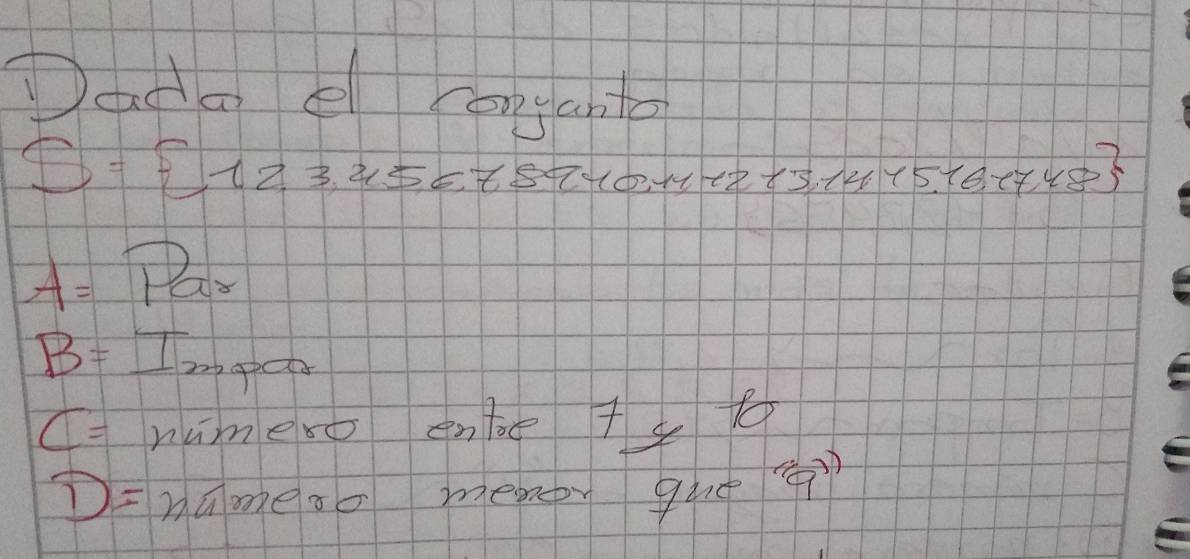 Dada el conjunto
S = {1 2, 3, 4 5 6, 7 8 9 10, 11 12 13, 14 15, 16, 17, 18}
A = Par
B = Impar
C = número entre 7 y 10
D = número menor que "9"